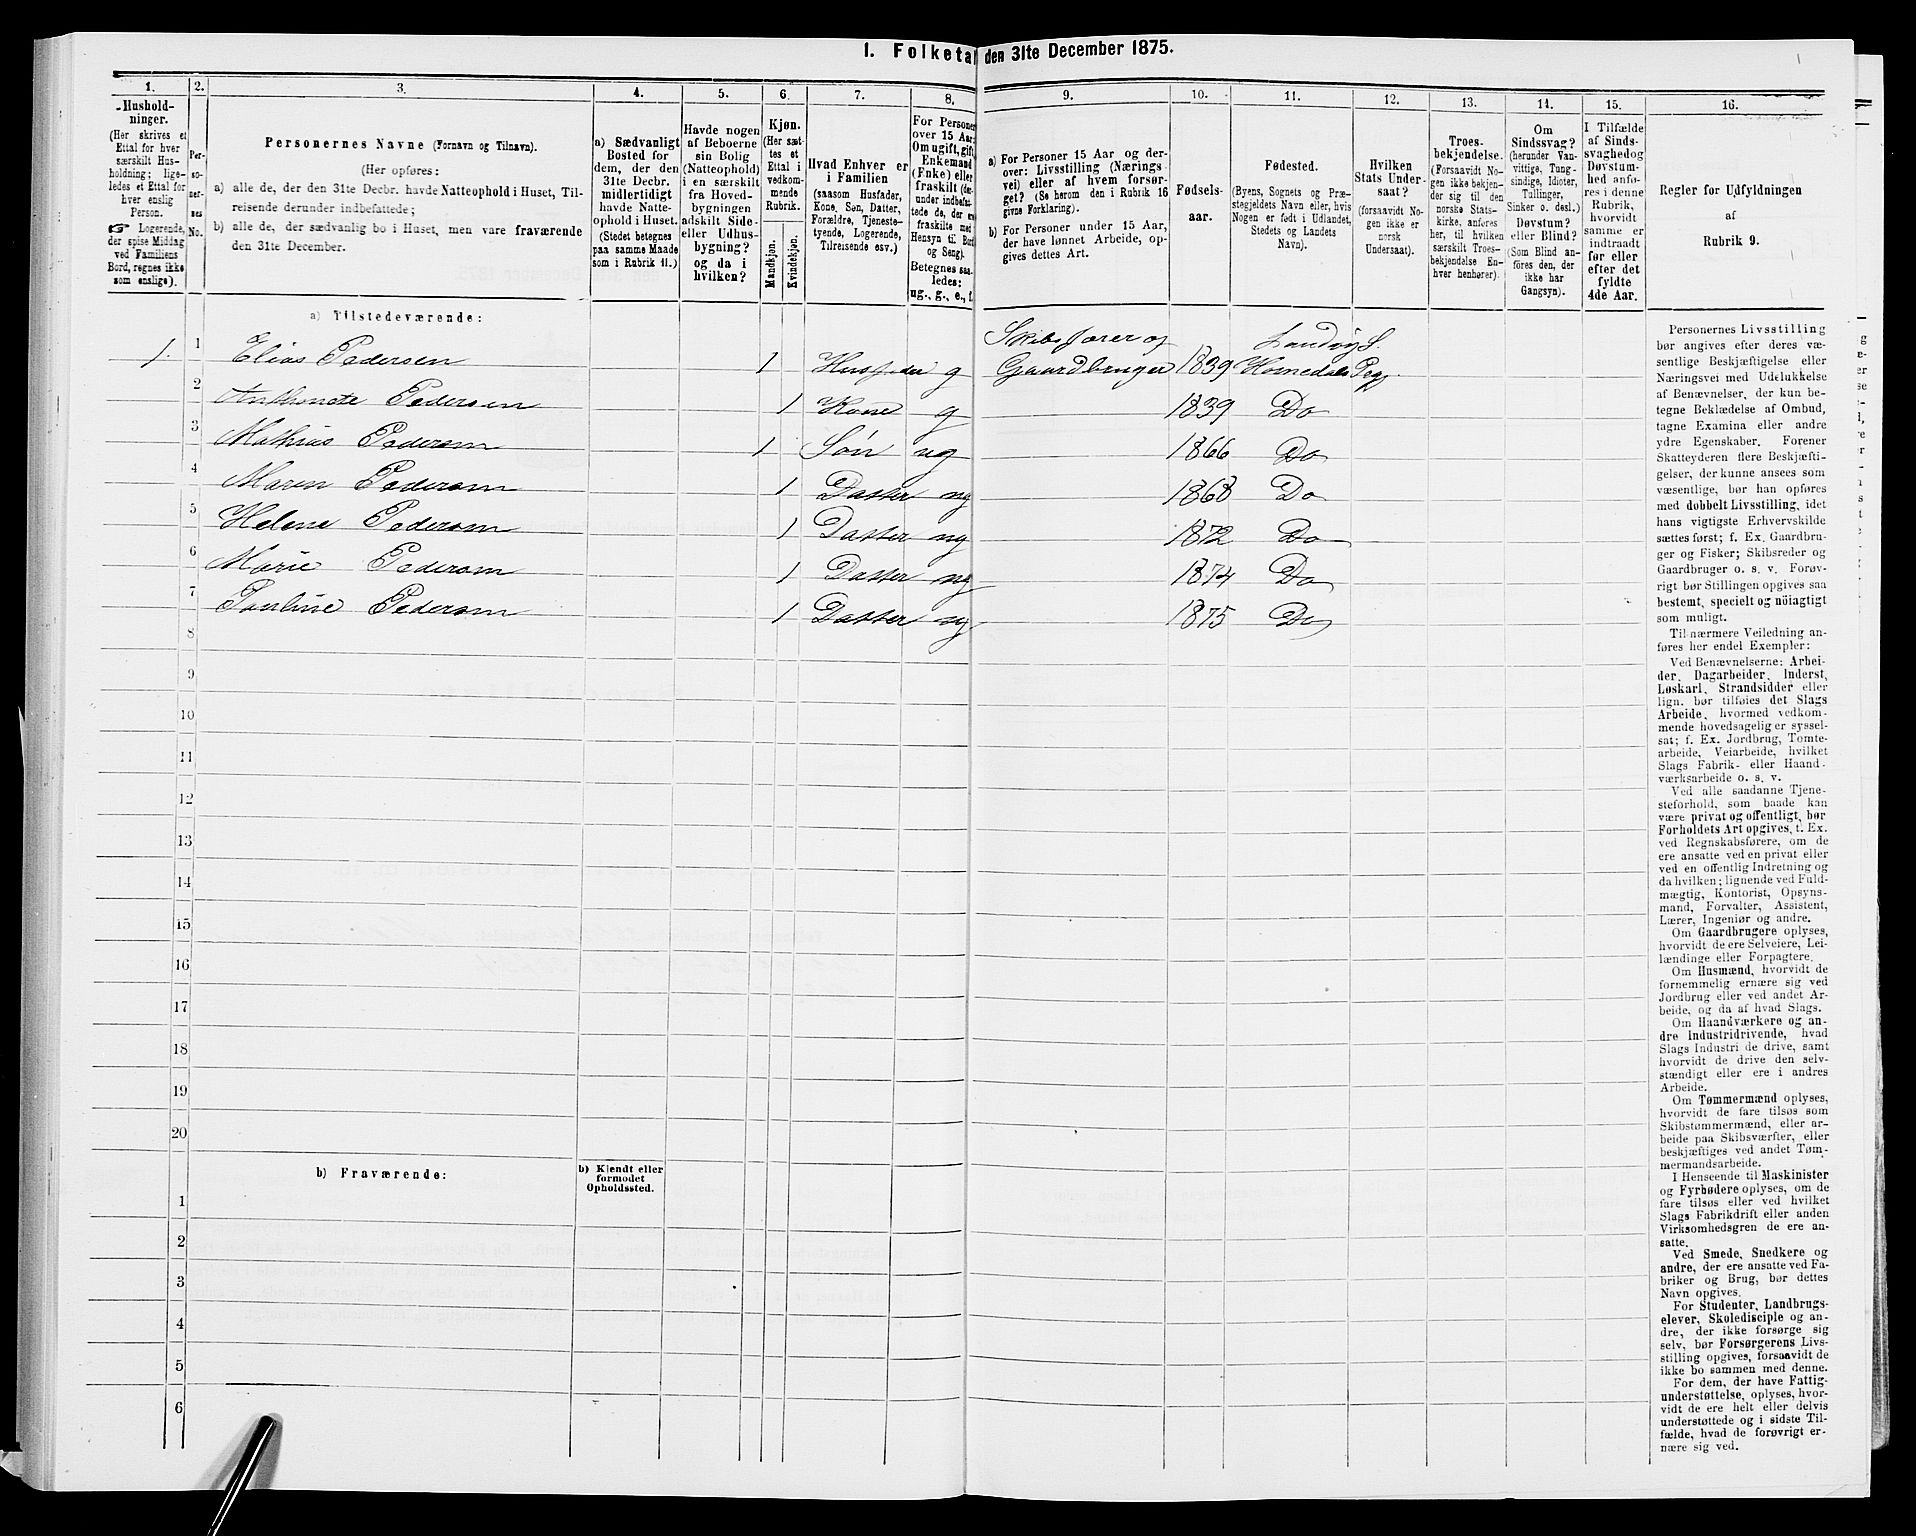 1. Folketal den 31te December 1875.
1. 2. 3. 4. 5. 6. 7. 8. 9. 10. 11. 12. 13. 14. 15. 16.
Hushold-
ninger.
(Her skrives et
Ettal for hver
særskilt Hus-
holdning; lige-
ledes et Ettal for
hver enslig
Person.
☞ Logerende,
der spise Middag
ved Familiens
Bord, regnes ikke
som enslige).
Per-
so-
ner-
nes
No.
Personernes Navne (Fornavn og Tilnavn).
(Her opføres:
a) alle de, der den 31te Decbr. havde Natteophold i Huset, Til-
reisende derunder indbefattede;
b) alle de, der sædvanlig bo i Huset, men vare fraværende
den 31te December.
a) Sædvanligt
Bosted for
dem, der den
31te Decbr.
midlertidigt
havde Natte-
ophold i Huset.
(Stedet betegnes
paa samme Maade
som i Rubrik 11.)
Havde nogen
af Beboerne
sin Bolig
(Natteophold)
i en særskilt
fra Hoved-
bygningen
adskilt Side-
eller Udhus-
bygning?
og da i
hvilken?
Kjøn.
(Her sæt-
tes et
Ettal i
vedkom-
mende
Rubrik.
Mandkjøn.
Kvindekjøn.
Hvad Enhver er
i Familien
(saasom Husfader,
Kone, Søn, Datter,
Forældre, Tjeneste-
tyende, Logerende,
Tilreisende osv.)
For Personer
over 15 Aar:
Om ugift, gift,
Enkemand
(Enke) eller
fraskilt (der-
under indbefat-
tede de, der ere
fraskilte med
Hensyn til Bord
og Seng).
Betegnes saa-
ledes:
ug., g., e., f.
a) For Personer 15 Aar og der-
over: Livsstilling (Nærings-
vei) eller af hvem forsør-
get? (Se herom den i Rubrik 16
givne Forklaring).
b) For Personer under 15 Aar,
der have lønnet Arbeide, op-
gives dettes Art.
Fødsels-
aar.
Fødested.
(Byens, Sognets og Præ-
stegjeldets Navn eller, hvis
Nogen er født i Udlandet,
Stedets og Landets
Navn).
Hvilken
Stats Under-
saat?
(forsaavidt No-
gen ikke er
norsk
Undersaat).
Troes-
bekjendelse.
(Forsaavidt No-
gen ikke bekjen-
der sig til den
norske Stats-
kirke, anføres
her, til hvilken
særskilt Troes-
bekjendelse En-
hver henhører).
Om
Sindssvag?
(herunder Van-
vittige, Tung-
sindige, Idioter,
Tullinger,
Sinker o. desl.)
Døvstum?
eller Blind?
(Som Blind an-
føres den, der
ikke har
Gangsyn).
I Tilfælde
af Sinds-
svaghed og
Døvstum-
hed anfø-
res i denne
Rubrik,
hvorvidt
samme er
indtraadt
før eller
efter det
fyldte
4de Aar.
Regler for Udfyldningen
af
Rubrik 9.
a) Tilstedeværende:
1. 1 Elias Pedersen 1 Husfader g Skibsfører og Gaardbruger 1839 Landvig S. Homedals Pgj.
2 Anthonete Pedersen 1 Kone g 1839 Do
3 Mathias Pedersen 1 Søn ug 1866 Do
4 Maren Pedersen 1 Datter ug 1868 Do
5 Helene Pedersen 1 Datter ug 1872 Do
6 Marie Pedersen 1 Datter ug 1874 Do
7 Pauline Pedersen 1 Datter ug 1875 Do
8
9
10
11
12
13
14
15
16
17
18
19
20
b) Fraværende:
b) Kjendt eller
formodet
Opholdssted.
1
2
3
4
5
6
Personernes Livsstilling
bør angives efter deres væ-
sentlige Beskjæftigelse eller
Næringsvei med Udelukkelse
af Benævnelser, der kun be-
tegne Beklædelse af Ombud,
tagne Examina eller andre
ydre Egenskaber. Forener
Skatteyderen flere Beskjæfti-
gelser, der kunne ansees som
væsentlige, bør han opføres
med dobbelt Livsstilling, idet
hans vigtigste Erhvervskilde
sættes først; f. Ex. Gaardbru-
ger og Fisker; Skibsreder og
Gaardbruger o. s. v. Forøv-
rigt bør Stillingen opgives saa
bestemt, specielt og nöiagtigt
som muligt.
Til nærmere Veiledning an-
føres her endel Exempler:
Ved Benævnelserne: Arbei-
der, Dagarbeider, Inderst,
Løskarl, Strandsidder eller
lign. bør tilføies det Slags
Arbeide, hvormed vedkom-
mende hovedsagelig er syssel-
sat; f. Ex. Jordbrug, Tomte-
arbeide, Veiarbeide, hvilket
Slags Fabrik- eller Haand-
værksarbeide o. s. v.
Ved alle saadanne Tjene-
steforhold, som baade kan
være privat og offentligt, bør
Forholdets Art opgives, f. Ex.
ved Regnskabsførere, om de
ere ansatte ved en privat eller
ved en offentlig Indretning og
da hvilken; lignende ved Fuld-
mægtig, Kontorist, Opsyns-
mand, Forvalter, Assistent,
Lærer, Ingeniør og andre.
Om Gaardbrugere oplyses,
hvorvidt de ere Selveiere, Lei-
lændinge eller Forpagtere.
Om Husmænd, hvorvidt de
fornemmelig ernære sig ved
Jordbrug eller ved andet Ar-
beide, og da af hvad Slags.
Om Haandværkere og an-
dre Industridrivende, hvad
Slags Industri de drive, samt
hvorvidt de drive den selv-
stændigt eller ere i andres
Arbeide.
Om Tømmermænd oplyses,
hvorvidt de fare tilsøs som
Skibstømmermænd, eller ar-
beide paa Skibsværfter, eller
beskjæftiges ved andet Tøm-
mermandsarbeide.
I Henseende til Maskinister
og Fyrbødere oplyses, om de
fare tilsøs eller ved hvilket
Slags Fabrikdrift eller anden
Virksomhedsgren de ere an-
satte.
Ved Smede, Snedkere og
andre, der ere ansatte ved Fa-
briker og Brug, bør dettes
Navn opgives.
For Studenter, Landbrugs-
elever, Skoledisciple og an-
dre, der ikke forsørge sig
selv, bør Forsørgerens Livs-
stilling opgives, forsaavidt de
ikke bo sammen med denne.
For dem, der have Fattig-
understøttelse, oplyses, hvor-
vidt de ere helt eller delvis
understøttede og i sidste Til-
fælde, hvad de forøvrigt er-
nære sig ved.